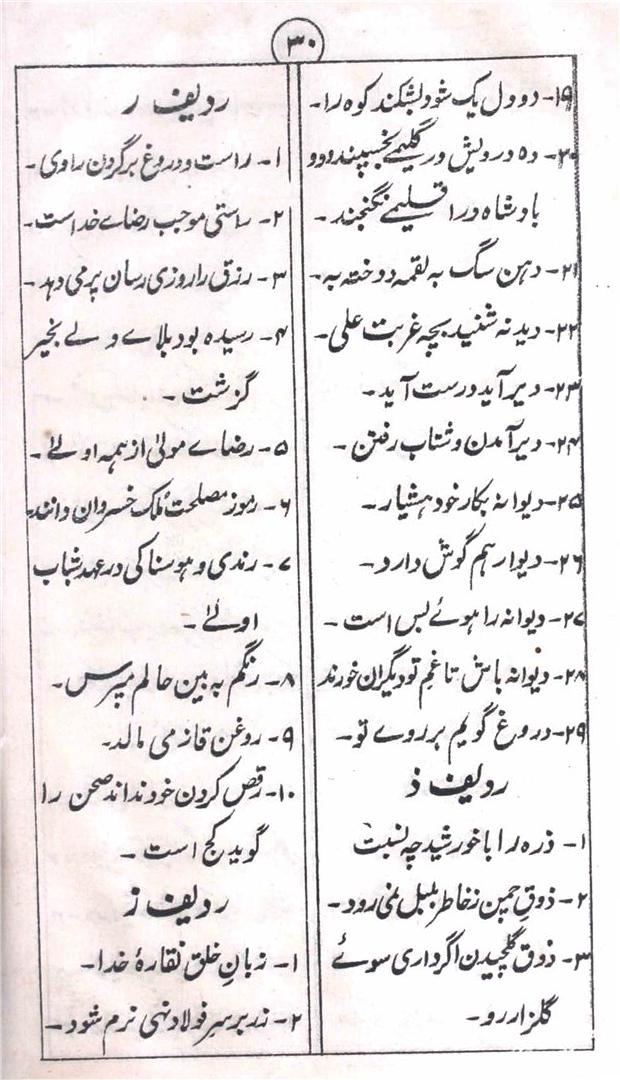 ۳۰
۱۹- دو دل یک شود بشکند کوہ را-
۲۰- دہ درویش در گلیمے بخسپند و دو
بادشاہ در اقلیمے نگنجند-
۲۱- دہن سگ بہ لقمہ دوختہ بہ-
۲۲- دیدنہ شنید بچہ غربت علی-
۲۳- دیر آید درست آید-
۲۴- دیر آمدن و شتاب رفتن-
۲۵- دیوانہ بکار خود ہشیار-
۲۶- دیوار ہم گوش دارد-
۲۷- دیوانہ را ہوئے بس است-
۲۸- دیوانہ باش تا غم تو دیگران خورند
۲۹- دروغ گویم بر روے تو-
ردیف ذ
۱- ذرہ را با خورشید چہ نسبت
۲- ذوق چمن ز خاطر بلبل نمی رود-
۳- ذوق گلچیدن اگر داری سوئے
گلزار رو-
ردیف ر
۱- راست و دروغ بر گردن راوی-
۲- راستی موجب رضاے خداست-
۳- رزق را روزی رسان پر می دہد-
۴- رسیدہ بود بلاے ولے بخیر
گزشت-
۵- رضاے مولیٰ از ہمہ اولےٰ-
۶- رموز مصلحت ملک خسروان دانند-
۷- رندی و ہوسناکی در عہد شباب
اولےٰ-
۸- رنگم بہ بین حالم مپرس-
۹- روغن قاز می مالد-
۱۰- رقص کردن خود نداند صحن را
گوید کج است-
ردیف ز
۱- زبانِ خلق نقارۂ خدا-
۲- زر بر سرِ فولاد نہی نرم شود-